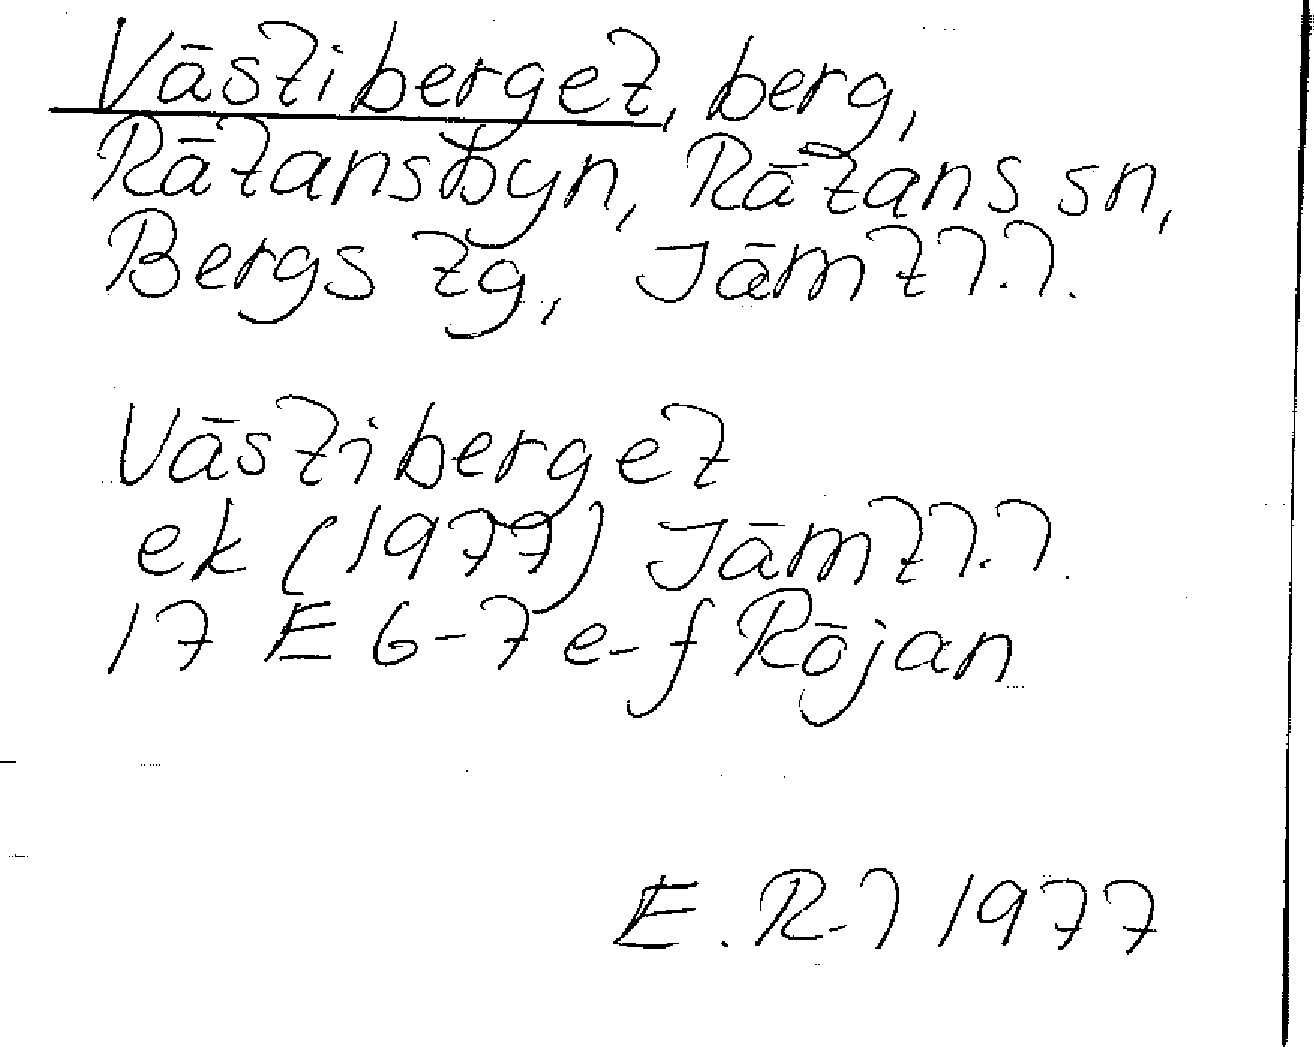 Västiberget, berg,
Rätansbyn, Rätans sn,
Bergs tg, Jämtl.l.
Västiberget
ek (1977) Jämtl.l.
17 E 6-7 e-f Röjan
E. R-l 1977